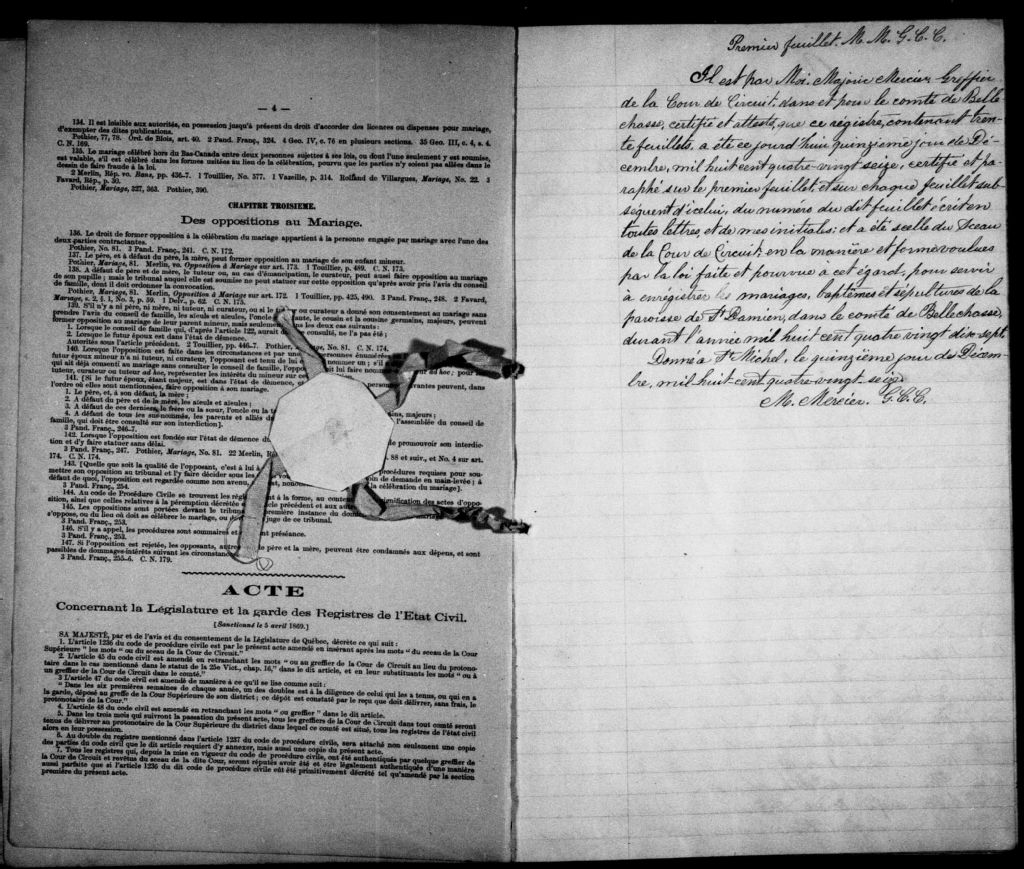 — 4 —
134. Il est loisible aux autorités, en possession jusqu'à présent du droit d'accorder des licences ou dispenses pour mariage,
d'exempter des dites publications.
Pothier, 77, 78. Ord. de Blois, art. 40. 2 Pand. Franç., 324. 4 Geo. IV, c. 76 en plusieurs sections. 35 Geo. III, c. 4, s. 4.
C. N. 169.
135. Le mariage célébré hors du Bas-Canada entre deux personnes sujettes à ses lois, ou dont l'une seulement y est soumise,
est valable, s'il est célébré dans les formes usitées au lieu de la célébration, pourvu que les parties n'y soient pas allées dans le
dessein de faire fraude à la loi.
2 Merlin, Rép. vo. Bans, pp. 436-7. 1 Touillier, No. 577. 1 Vazeille, p. 314. Rolland de Villargues, Mariage, No. 22. 3
Favard, Rép., p. 30.
Pothier, Mariage, 327, 363. Pothier, 390.
CHAPITRE TROISIEME.
Des oppositions au Mariage.
136. Le droit de former opposition à la célébration du mariage appartient à la personne engagée par mariage avec l'une des
deux parties contractantes.
Pothier, No. 81. 3 Pand. Franç., 241. C. N. 172.
137. Le père, et à défaut du père, la mère, peut former opposition au mariage de son enfant mineur.
Pothier, Mariage, 81. Merlin, vo. Opposition à Mariage sur art. 173. 1 Touillier, p. 489. C. N. 173.
138. A défaut de père et de mère, le tuteur ou, au cas d'émancipation, le curateur, peut aussi faire opposition au mariage
de son pupille; mais le tribunal auquel elle est soumise ne peut statuer sur cette opposition qu'après avoir pris l'avis du conseil
de famille, dont il doit ordonner la convocation.
Pothier, Mariage, 81. Merlin, Opposition à Mariage sur art. 172. 1 Touillier, pp. 425, 490. 3 Pand. Franç., 248. 2 Favard,
Mariage, s. 2, § 1, No. 3, p. 59. 1 Delv., p. 62. C. N. 175.
139. S'il n'y a ni père, ni mère, ni tuteur, ni curateur, ou si le ou curateur a donné son consentement au mariage sans
prendre l'avis du conseil de famille, les aïeuls et aïeules, l'oncle et la tante, le cousin et la cousine germains, majeurs, peuvent
former opposition au mariage de leur parent mineur, mais seulement les deux cas suivants:
1. Lorsque le conseil de famille qui, d'après l'article 122, aurait dû consulté, ne l'a pas été;
2. Lorsque le futur époux est dans l'état de démence.
Autorités sous l'article précédent. 2 Touillier, pp. 446-7. Pothier, Mariage, No. 81. C. N. 174.
140. Lorsque l'opposition est faite dans les circonstances et par une personnes énumérées
futur époux mineur n'a ni tuteur, ni curateur, l'opposant est tenu de lui nommer un: s'il
qui ait déjà consenti au mariage sans consulter le conseil de famille, l'opp lui faire nommer ad hoc; pour
tuteur, curateur ou tuteur ad hoc, représenter les intérêts du mineur sur cette
141. [Si le futur époux, étant majeur, est dans l'état de démence, et personnes suivantes peuvent, dans
l'ordre où elles sont mentionnées, faire opposition à son mariage.
1. Le père, et, à son défaut, la mère;
2. A défaut du père et de la mère, les aïeuls et aïeules;
3. A défaut de ces derniers, le frère ou la sœur, l'oncle ou la ins, majeurs;
4. A défaut de tous les sus-nommés, les parents et alliés d l'assemblée du conseil de
famille, qui doit être consulté sur son interdiction].
3 Pand. Franç., 246-7.
142. Lorsque l'opposition est fondée sur l'état de démence du de promouvoir son interdic-
tion et d'y faire statuer sans délai.
3 Pand. Franç., 247. Pothier, Mariage, No. 81. 22 Merlin, 88 et suiv., et No. 4 sur art.
174. C. N. 174.
143. [Quelle que soit la qualité de l'opposant, c'est à lui à procédures requises pour sou-
mettre son opposition au tribunal et l'y faire décider sous les ion de demande en main-levée; à
défaut de quoi, l'opposition est regardée comme non avenu la célébration du mariage].
3 Pand. Franç., 254.
144. Au code de Procédure Civile se trouvent les règ à la forme, au contenu signification des actes d'oppo-
sition, ainsi que celles relatives à la péremption décrétée article précédent et aux au
145. Les oppositions sont portées devant le tribunal première instance du domi
s'oppose, ou du lieu où doit se célébrer le mariage, ou juge de ce tribunal.
3 Pand. Franç., 253.
146. S'il y a appel, les procédures sont sommaires et préséance.
3 Pand. Franç., 253.
147. Si l'opposition est rejetée, les opposants, autres père et la mère, peuvent être condamnés aux dépens, et sont
passibles de dommages-intérêts suivant les circonstances
3 Pand. Franç., 255-6. C. N. 179.
ACTE
Concernant la Législature et la garde des Registres de l'Etat Civil.
[Sanctionné le 5 avril 1869.]
SA MAJESTÉ, par et de l'avis et du consentement de la Législature de Québec, décrète ce qui suit:
1. L'article 1236 du code de procédure civile est par le présent acte amendé en insérant après les mots "du sceau de la Cour
Supérieure" les mots "ou du sceau de la Cour de Circuit."
2. L'article 45 du code civil est amendé en retranchant les mots "ou au greffier de la Cour de Circuit au lieu du protono-
taire dans le cas mentionné dans le statut de la 25e Vict., chap. 16," dans le dit article, et en leur substituants les mots "ou à
un greffier de la Cour de Circuit dans le comté."
3 L'article 47 du code civil est amendé de manière à ce qu'il se lise comme suit:
"Dans les six premières semaines de chaque année, un des doubles est à la diligence de celui qui les a tenus, ou qui en a
la garde, déposé au greffe de la Cour Supérieure de son district; ce dépôt est constaté par le reçu que doit délivrer, sans frais, le
protonotaire de la Cour."
4. L'article 48 du code civil est amendé en retranchant les mots "ou greffier" dans le dit article.
5. Dans les trois mois qui suivront la passation du présent acte, tous les greffiers de la Cour de Circuit dans tout comté seront
tenus de délivrer au protonotaire de la Cour Supérieure du district dans lequel ce comté est situé, tous les registres de l'état civil
alors en leur possession.
6. Au double du registre mentionné dans l'article 1237 du code de procédure civile, sera attaché non seulement une copie
des parties du code civil que le dit article requiert d'y annexer, mais aussi une copie du présent acte.
7. Tous les registres qui, depuis la mise en vigueur du code de procédure civile, ont été authentiqués par quelque greffier de
la Cour de Circuit et revêtus du sceau de la dite Cour, seront réputés avoir été et être légalement authentiqués d'une manière
aussi parfaite que si l'article 1236 du dit code de procédure civile eût été primitivement décrété tel qu'amendé par la section
première du présent acte.
Premier feuillet. M. M. G. C. C.
Il est par Moi, Majoric Mercier Greffier
de la Cour de Circuit, dans et pour le comté de Belle
chasse, certifié et attesté, que ce registre, contenant tren-
te feuillets, a été ce jourd'hui quinzième jour de Dé-
cembre, mil huit cent quatre-vingt seize, certifié et pa-
raphé sur le premier feuillet, et sur chaque feuillet sub-
séquent d'icelui, du numéro du dit feuillet écrit en
toutes lettres, et de mes initiales: et a été scellé du Sceau
de la Cour de Circuit, en la manière et forme voulues
par la loi faite et pourvue à cet égard, pour servir
à enrégistrer les mariages, baptêmes et sépultures de la
paroisse de St Damien, dans le comté de Bellechasse,
durant l'année mil huit cent quatre vingt dix-sept.
Donné à St Michel, le quinzième jour de Décem-
bre, mil-huit-cent quatre-vingt-seize
M. Mercier. G. C. C.